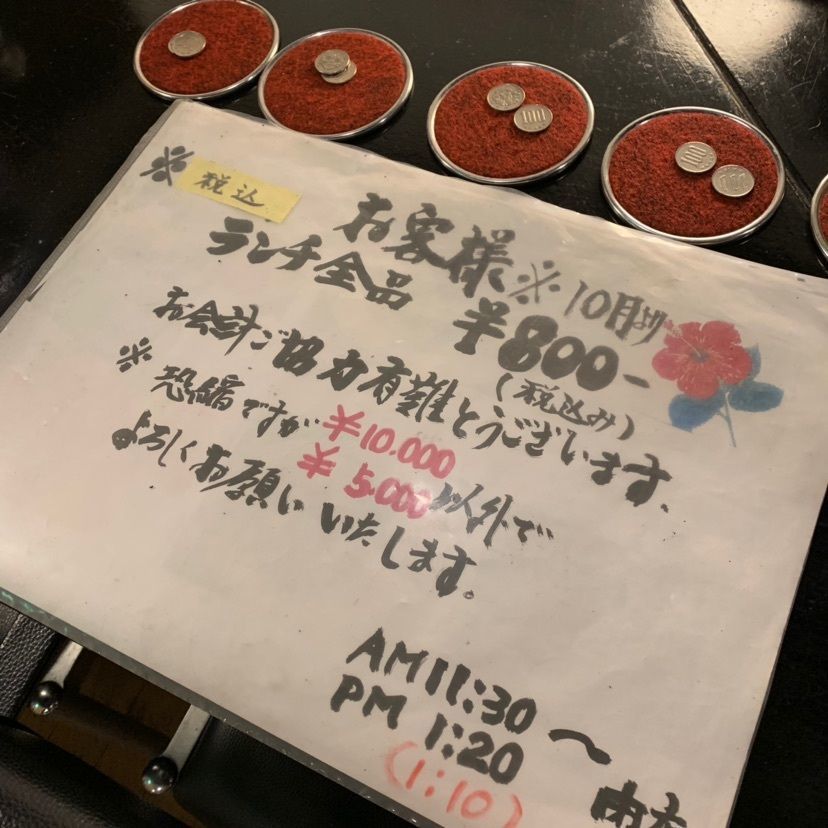 ※ 税込
お客様
ランチ全品 ※10月より
¥800-
(税込み)
お会計ご協力有難とうございます、
※ 恐縮ですが ¥10.000
¥ 5.000 以外で
よろしくお願いいたします。
AM11:30〜
PM 1:20
(1:10)
100
100
100